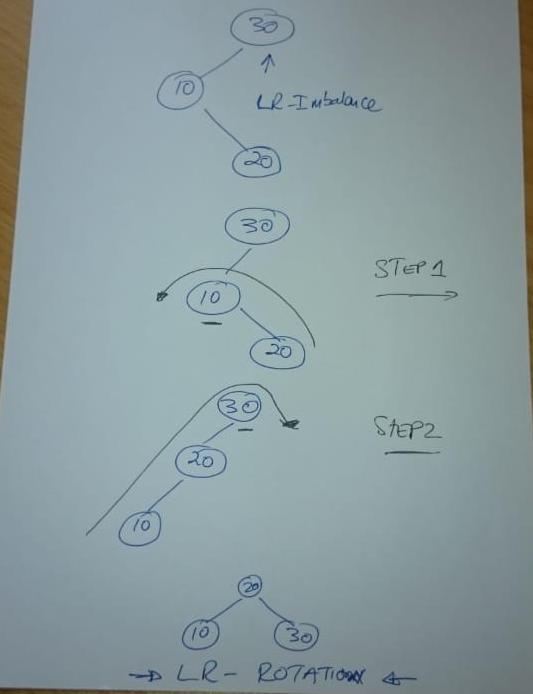 30
10
LR-Imbalance
20
30
STEP1
10
20
30
STEP2
20
10
20
10 30
→ LR- ROTATION ←